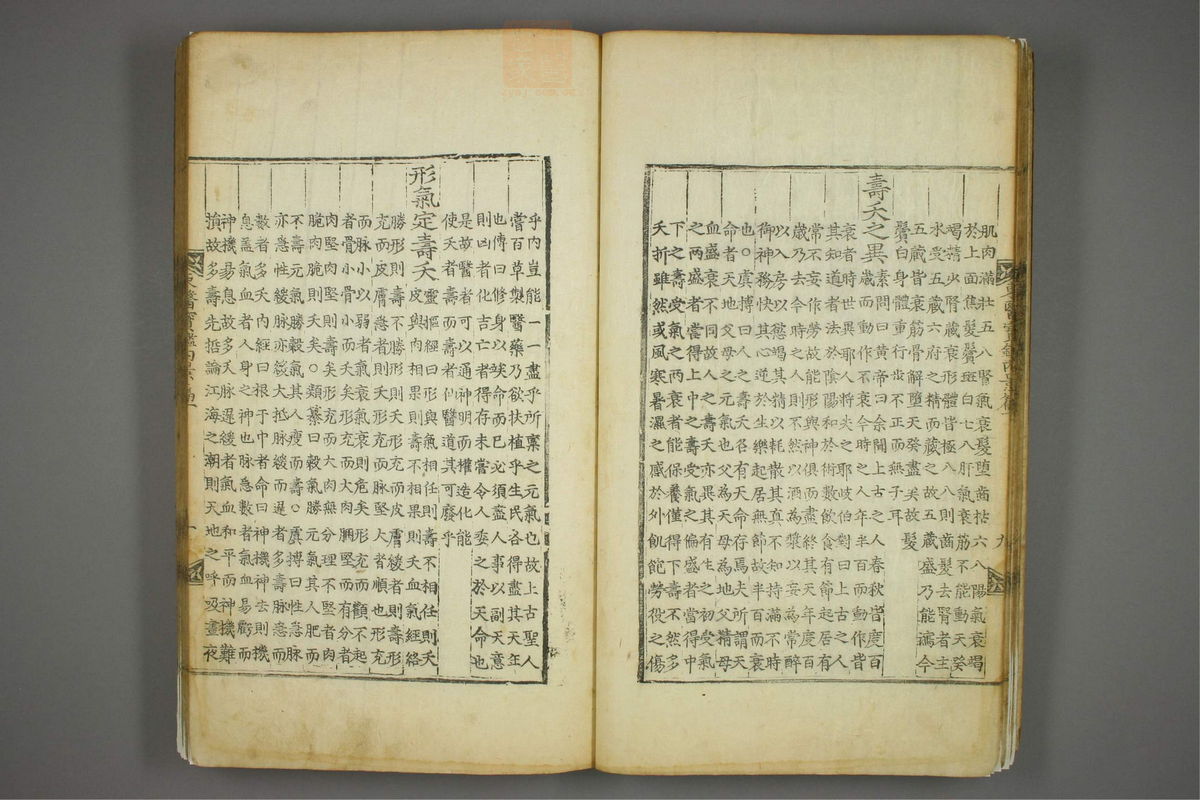 肌肉滿壯五八腎氣衰髮墮齒枯六八陽氣衰竭
於上面焦髮鬢斑白七八肝氣衰筋不能動天癸
竭精少腎藏衰形體皆極八八則齒髮去腎者主
水受五藏六府之精而藏之故五藏盛乃能瀉今
五藏皆衰筋骨解墮天癸盡矣故髮
鬢白身體重行步不正而無子耳
壽夭之異
素問曰黃帝曰余聞上古之人春秋皆度百
歲而動作不衰今時之人年半百而動作皆
衰者時世異耶人將失之耶岐伯對曰上古之人
其知道者法於陰陽和於術數飲食有節起居有
常不妄作勞故能形與神俱而盡終其天年度百
歲乃去今時之人則不然以酒為漿以妄為常醉
以入房以慾竭其精以耗散其真不知持滿不時
御神務快其心逆於生樂起居無節故半百而衰
也○虞摶曰人之壽夭各有天命存焉夫所謂天
命者天地父母之元氣也父為天母為地父精母
血盛衰不同故人之壽夭亦異其有生之初受氣
之兩盛者當得上中之壽受氣之偏盛者當得中
下之壽受氣之兩衰者能保養僅得下壽不然多
夭折雖然或風寒暑濕之感於外飢飽勞役之傷
乎內豈能一一盡乎所稟之元氣也故上古聖人
嘗百草製醫藥乃欲扶植乎生民各得盡其天年
也傳曰修身以竢命而已必須盡人事以副天意
則凶者化吉亡者得存未嘗令人委之於天命也
是故醫者可以通神明而權造化能
使夭者壽而壽者仙醫道其可廢乎
形氣定壽夭
靈樞經曰形與氣相任則壽不相任則夭
皮與肉相果則壽不相果則夭血氣經絡
勝形則壽不勝形則夭形充而皮膚緩者則壽形
充而皮膚急者則夭形充而脉堅大者順也形充
而脉小以弱者氣衰氣衰則危矣形充而顴不起
者骨小骨小而夭矣形充而大肉䐃堅而有分者
肉堅肉堅則壽矣形充而大肉無分理不堅者肉
脆肉脆則夭矣○類纂曰穀氣勝元氣其人肥而
不壽元氣勝穀氣其人瘦而壽○虞摶曰性急脉
亦急性緩脉亦緩大抵脉緩而遲者多壽脉急而
數者多夭內經曰根于中者命曰神機神去則機
息盖氣血者人身之神也脉急數者氣血易虧而
神機易息故多夭脉遲緩者氣血和平而神機難
損故多壽先哲論江海之潮則天地之呼吸晝夜